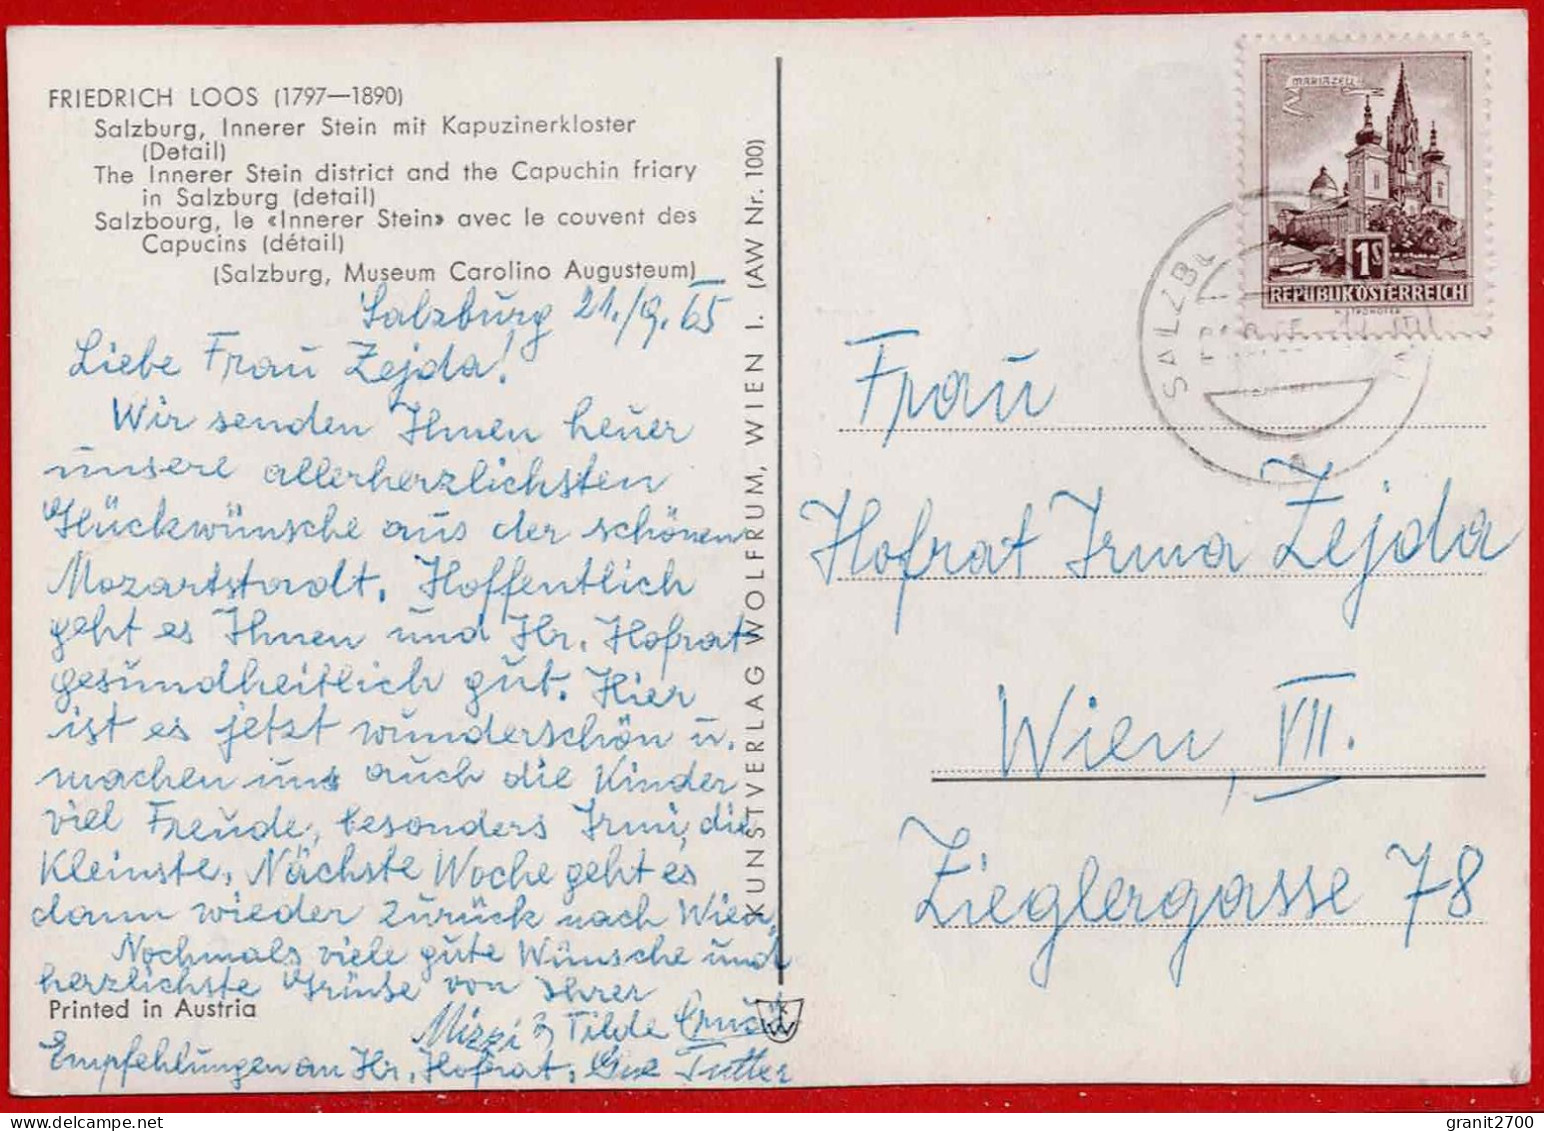 FRIEDRICH LOOS (1797—1890)
Salzburg, Innerer Stein mit Kapuzinerkloster
(Detail)
The Innerer Stein district and the Capuchin friary
in Salzburg (detail)
Salzbourg, le «Innerer Stein» avec le couvent des
Capucins (détail)
(Salzburg, Museum Carolino Augusteum)
Salzburg 21./9. 65
Liebe Frau Zejda!
Wir senden Ihnen heuer
unsere allerherzlichsten
Glückwünsche aus der schönen
Mozartstadt. Hoffentlich
geht es Ihnen und Hr. Hofrat
gesundheitlich gut. Hier
ist es jetzt wunderschön u.
machen uns auch die Kinder
viel Freude, besonders Irmi, die
Kleinste. Nächste Woche geht es
dann wieder zurück nach Wien.
Nochmals viele gute Wünsche und
herzlichste Grüße von Ihrer
Printed in Austria
Mizzi Tilde
Empfehlungen an Hr. Hofrat.
KUNSTVERLAG WOLFRUM, WIEN I. (AW Nr. 100)
MARIAZELL
1S
REPUBLIK ÖSTERREICH
SALZBU
Frau
Hofrat Irma Zejda
Wien, VII.
Zieglergasse 78
granit2700